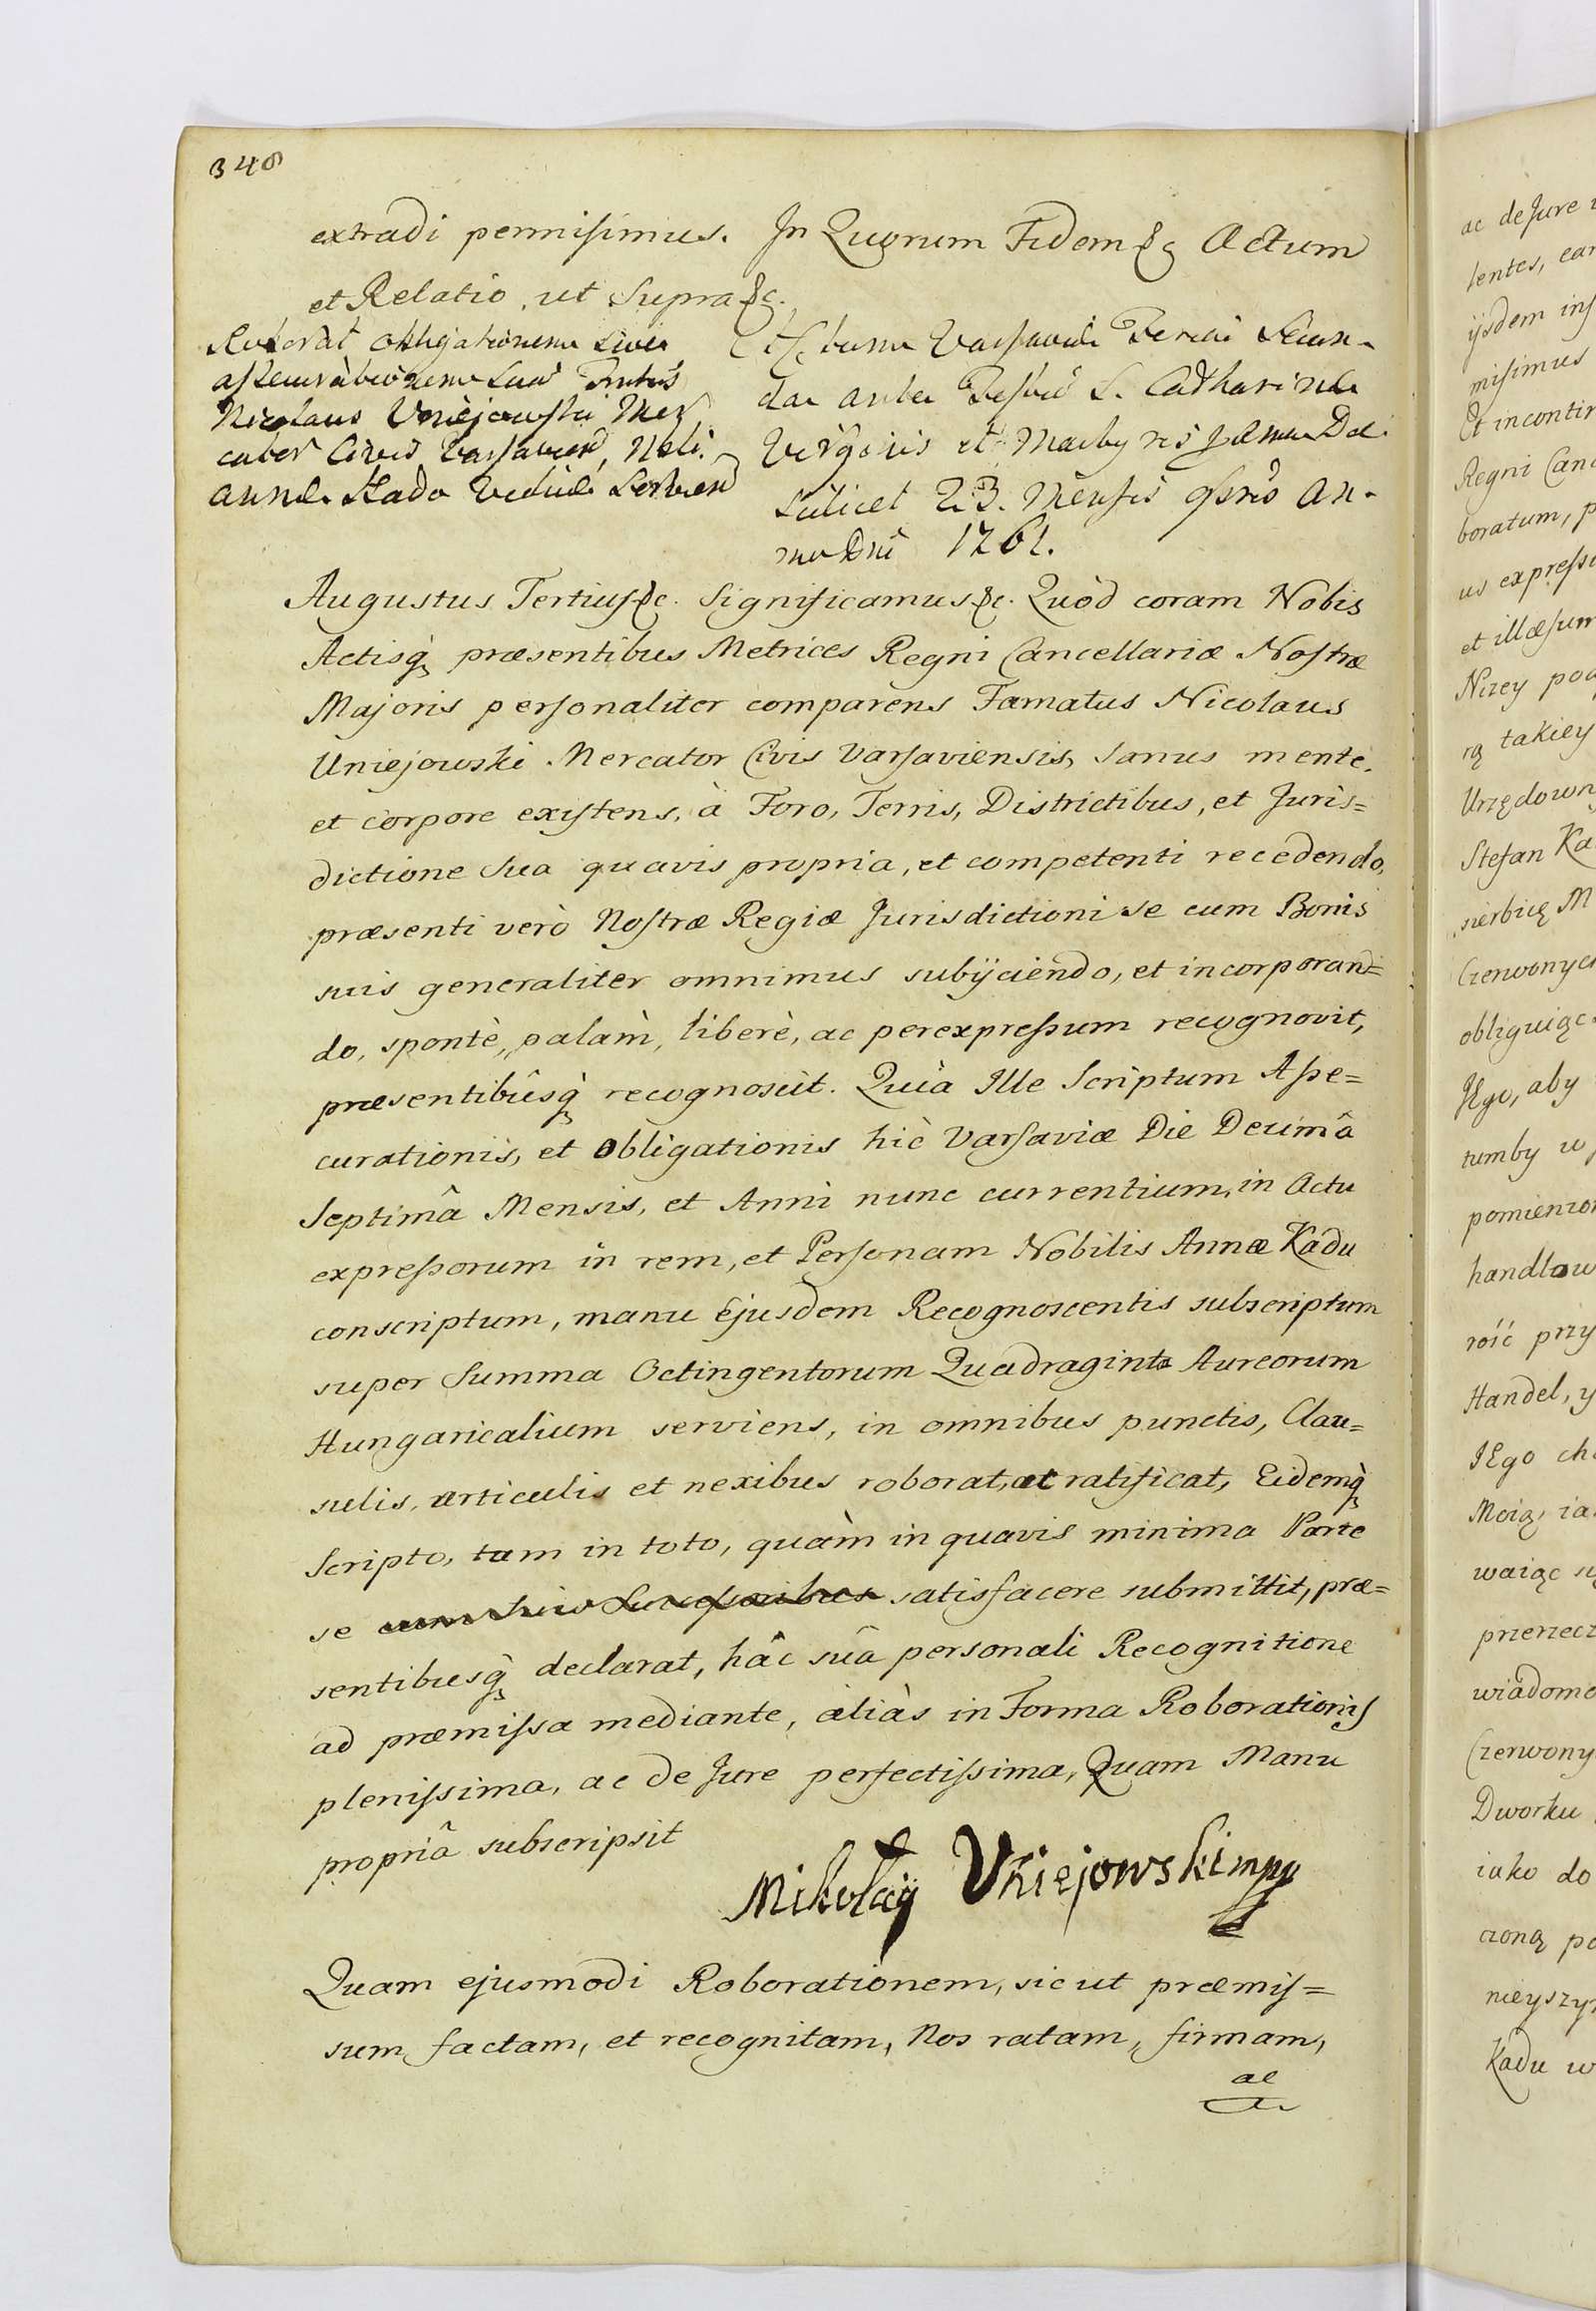 348
extradi permisimus. In Quorum Fidem &c Actum
et Relatio, ut Supra &c.
Roborat obligationem sive
assecurationem suā Fmtus
Nicolaus Uniejowski Mer
cator Civis Varsavien, Nobi.
Annæ Kado Viduæ Servien
Actum Varsaviæ Feria Secun-
da ante Festū S. Catharinæ
Virginis et Martyris
scilicet 23. Mensis 9bris An-
no Dni 1761.
Augustus Tertius &c. Significamus &c. Quòd coram Nobis
Actisq̀ præsentibus Metrices Regni Cancellariæ Nostræ
Majoris personaliter comparens Famatus Nicolaus
Uniejowski Mercator Civis Varsaviensis, Sanus mente,
et corpore existens, à Foro, Terris, Districtibus, et Juris=
dictione Sua quavis propria, et competenti recedendo,
præsenti verò Nostræ Regiæ Jurisdictioni se cum Bonis
suis generaliter omnimus subijciendo, et incorporan=
do, spontè, palàm, liberè, ac perexpressum recognovit,
præsentibûsq̀ recognoscit. Quia Ille Scriptum Asse=
curationis, et Obligationis hìc Varsaviæ Die Decimâ
Septimâ Mensis, et Anni nunc currentium, in Actu
expressorum in rem, et Personam Nobilis Annæ Kadu
conscriptum, manu Ejusdem Recognoscentis subscriptum
super Summa Octingentorum Quadraginta Aureorum
Hungaricalium serviens, in omnibus punctis, Clau=
sulis, articulis et nexibus roborat, et ratificat, Eidemq̀
Scripto, tam in toto, quàm in quavis minima Parte
se cum Suis Successoribus satisfacere submittit, præ=
sentibusq̀ declarat, hâc suâ personali Recognitione
ad præmissa mediante, aliàs in Forma Roborationis
plenissima, ac de Jure perfectissima, Quam Manu
propriâ subscripsit
Mikołaÿ Uniejowski mpp
Quam ejusmodi Roborationem, sic ut præmis=
sum, factam, et recognitam, Nos ratam, firmam,
ac
ac de Jure
lentes, ear
ijsdem ins
misimus
Et incontin
Regni Canc
boratum, p
us expressi
et illæsum
Nizey pod
rą takiey
Urzędown
Stefan Ka
sierbię M
Czerwonych
obliguiąc
JEgo, aby
tumby w
pomienion
handlow
rość przy
Handel, y
JEgo ch
Moią, ia
waiąc s
przerzecz
wiadomo
Czerwony
Dworku
iako do
czoną po
nieyszy
Kadu w